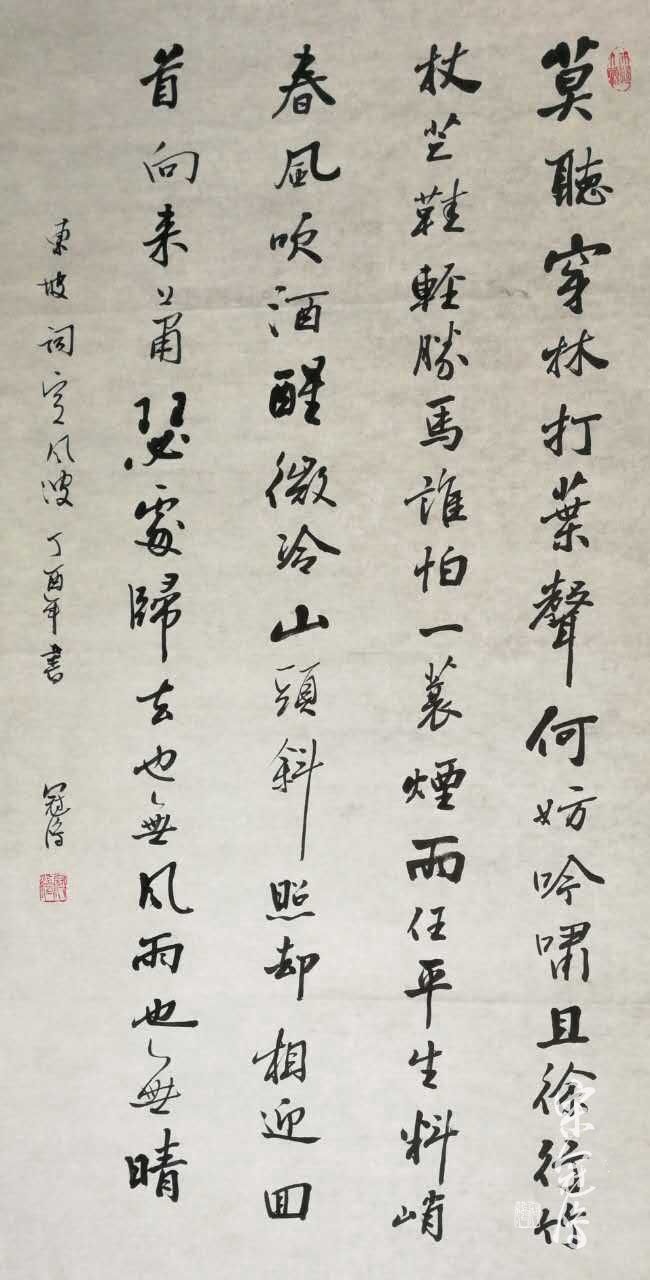 莫聽穿林打葉聲何妨吟嘯且徐行竹
杖芒鞋輕勝馬誰怕一蓑煙雨任平生料峭
春風吹酒醒微冷山頭斜照却相迎回
首向来蕭瑟處歸去也無風雨也無晴
東坡詞定風波丁酉年書
冠